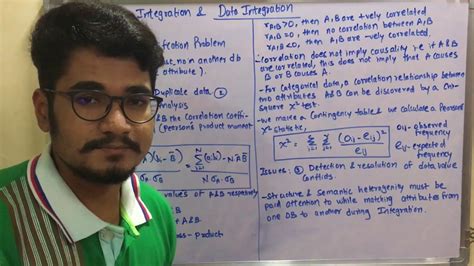 Integration & Data Integration
fication Problem
no in another db
attribute).
Duplicate data ②
Analysis
the correlation coeffi-
(Pearson's product moment
values of A&B respectively
A&B
oss-product
rA,B>0, then A,B are +vely correlated
rA,B=0, then no correlation between A,B
rA,B<0, then A,B are -vely correlated.
does not imply causality i.e if A&B
are correlated, this does not imply that A causes
B or B causes A.
- For categorical data, a correlation relationship between
two attributes A&B can be discovered by a
square χ² test.
- we make a Contingency table & we calculate a Pearson's
χ² statistic,
χ² = Σ Σ (Oij - eij)² / eij
Oij - observed frequency
eij - expected frequency
Issues: ③ Detection & resolution of data value
conflicts
- Structure & Semantic heterogenity must be
paid attention to while matching attributes from
one DB to another during Integration.